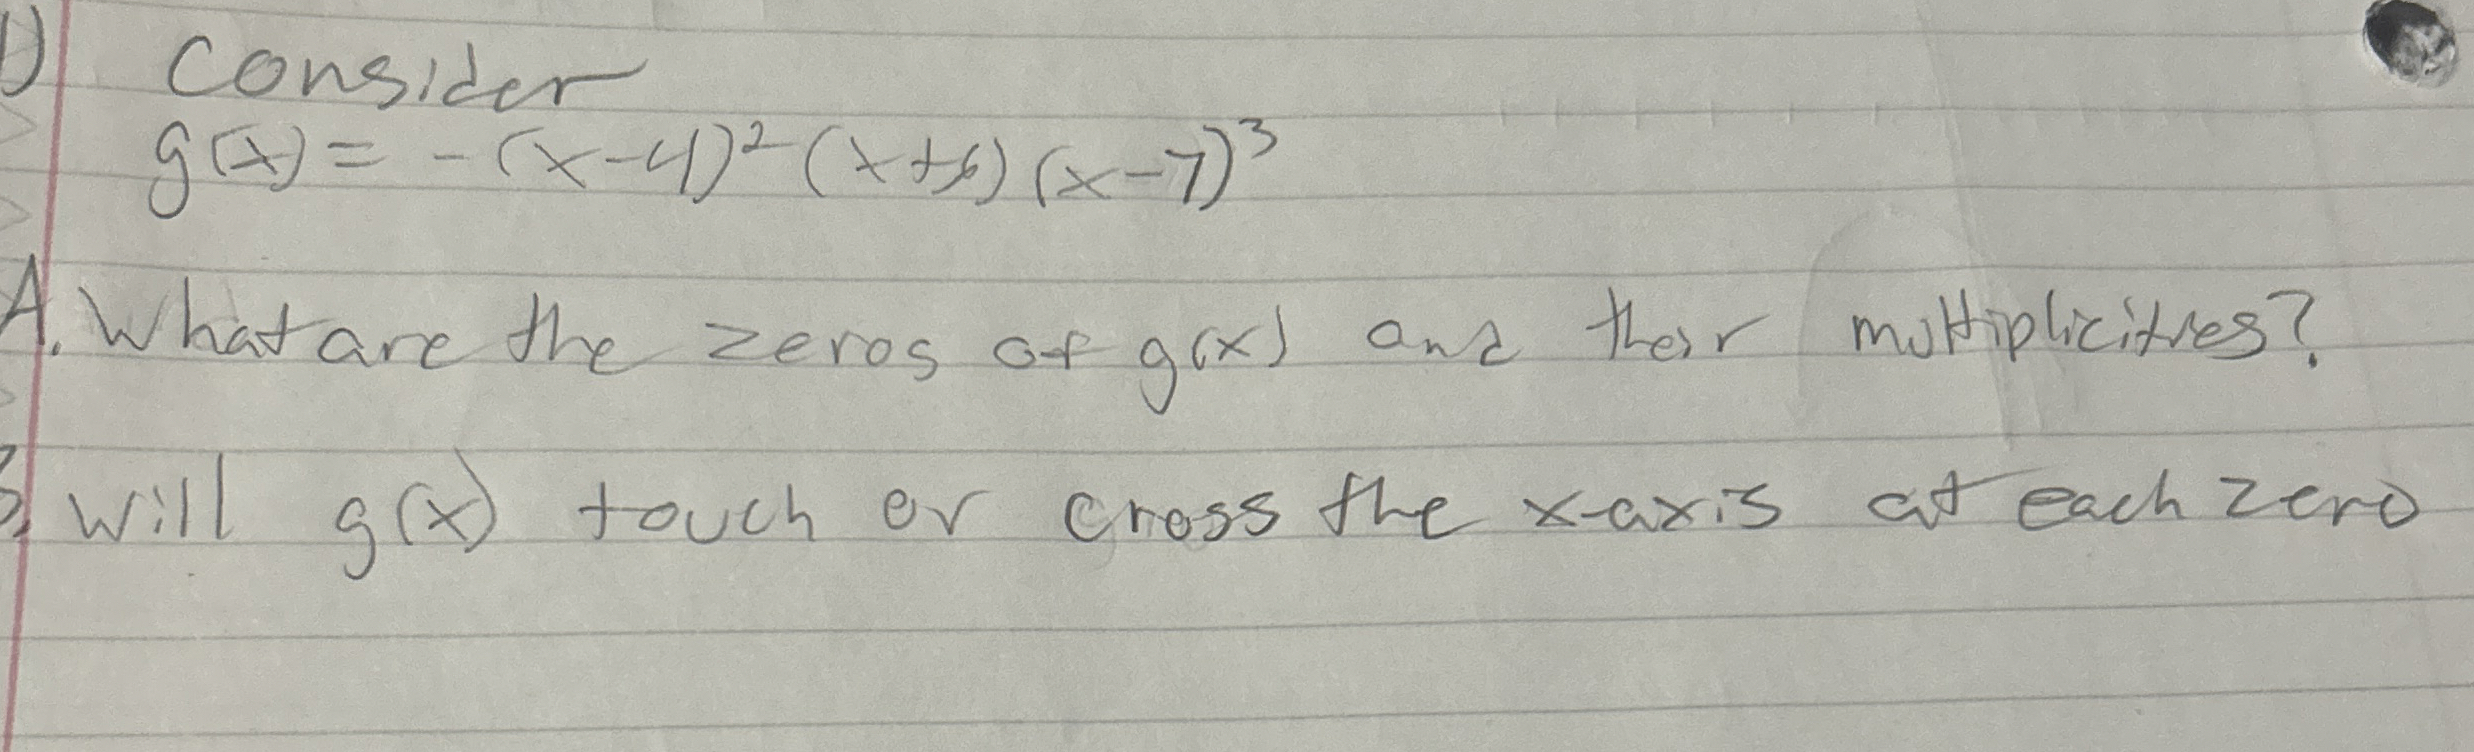 1) Consider
g(x) = -(x-4)²(x+6)(x-7)³
A. What are the zeros of g(x) and their multiplicities?
B. Will g(x) touch or cross the x-axis at each zero